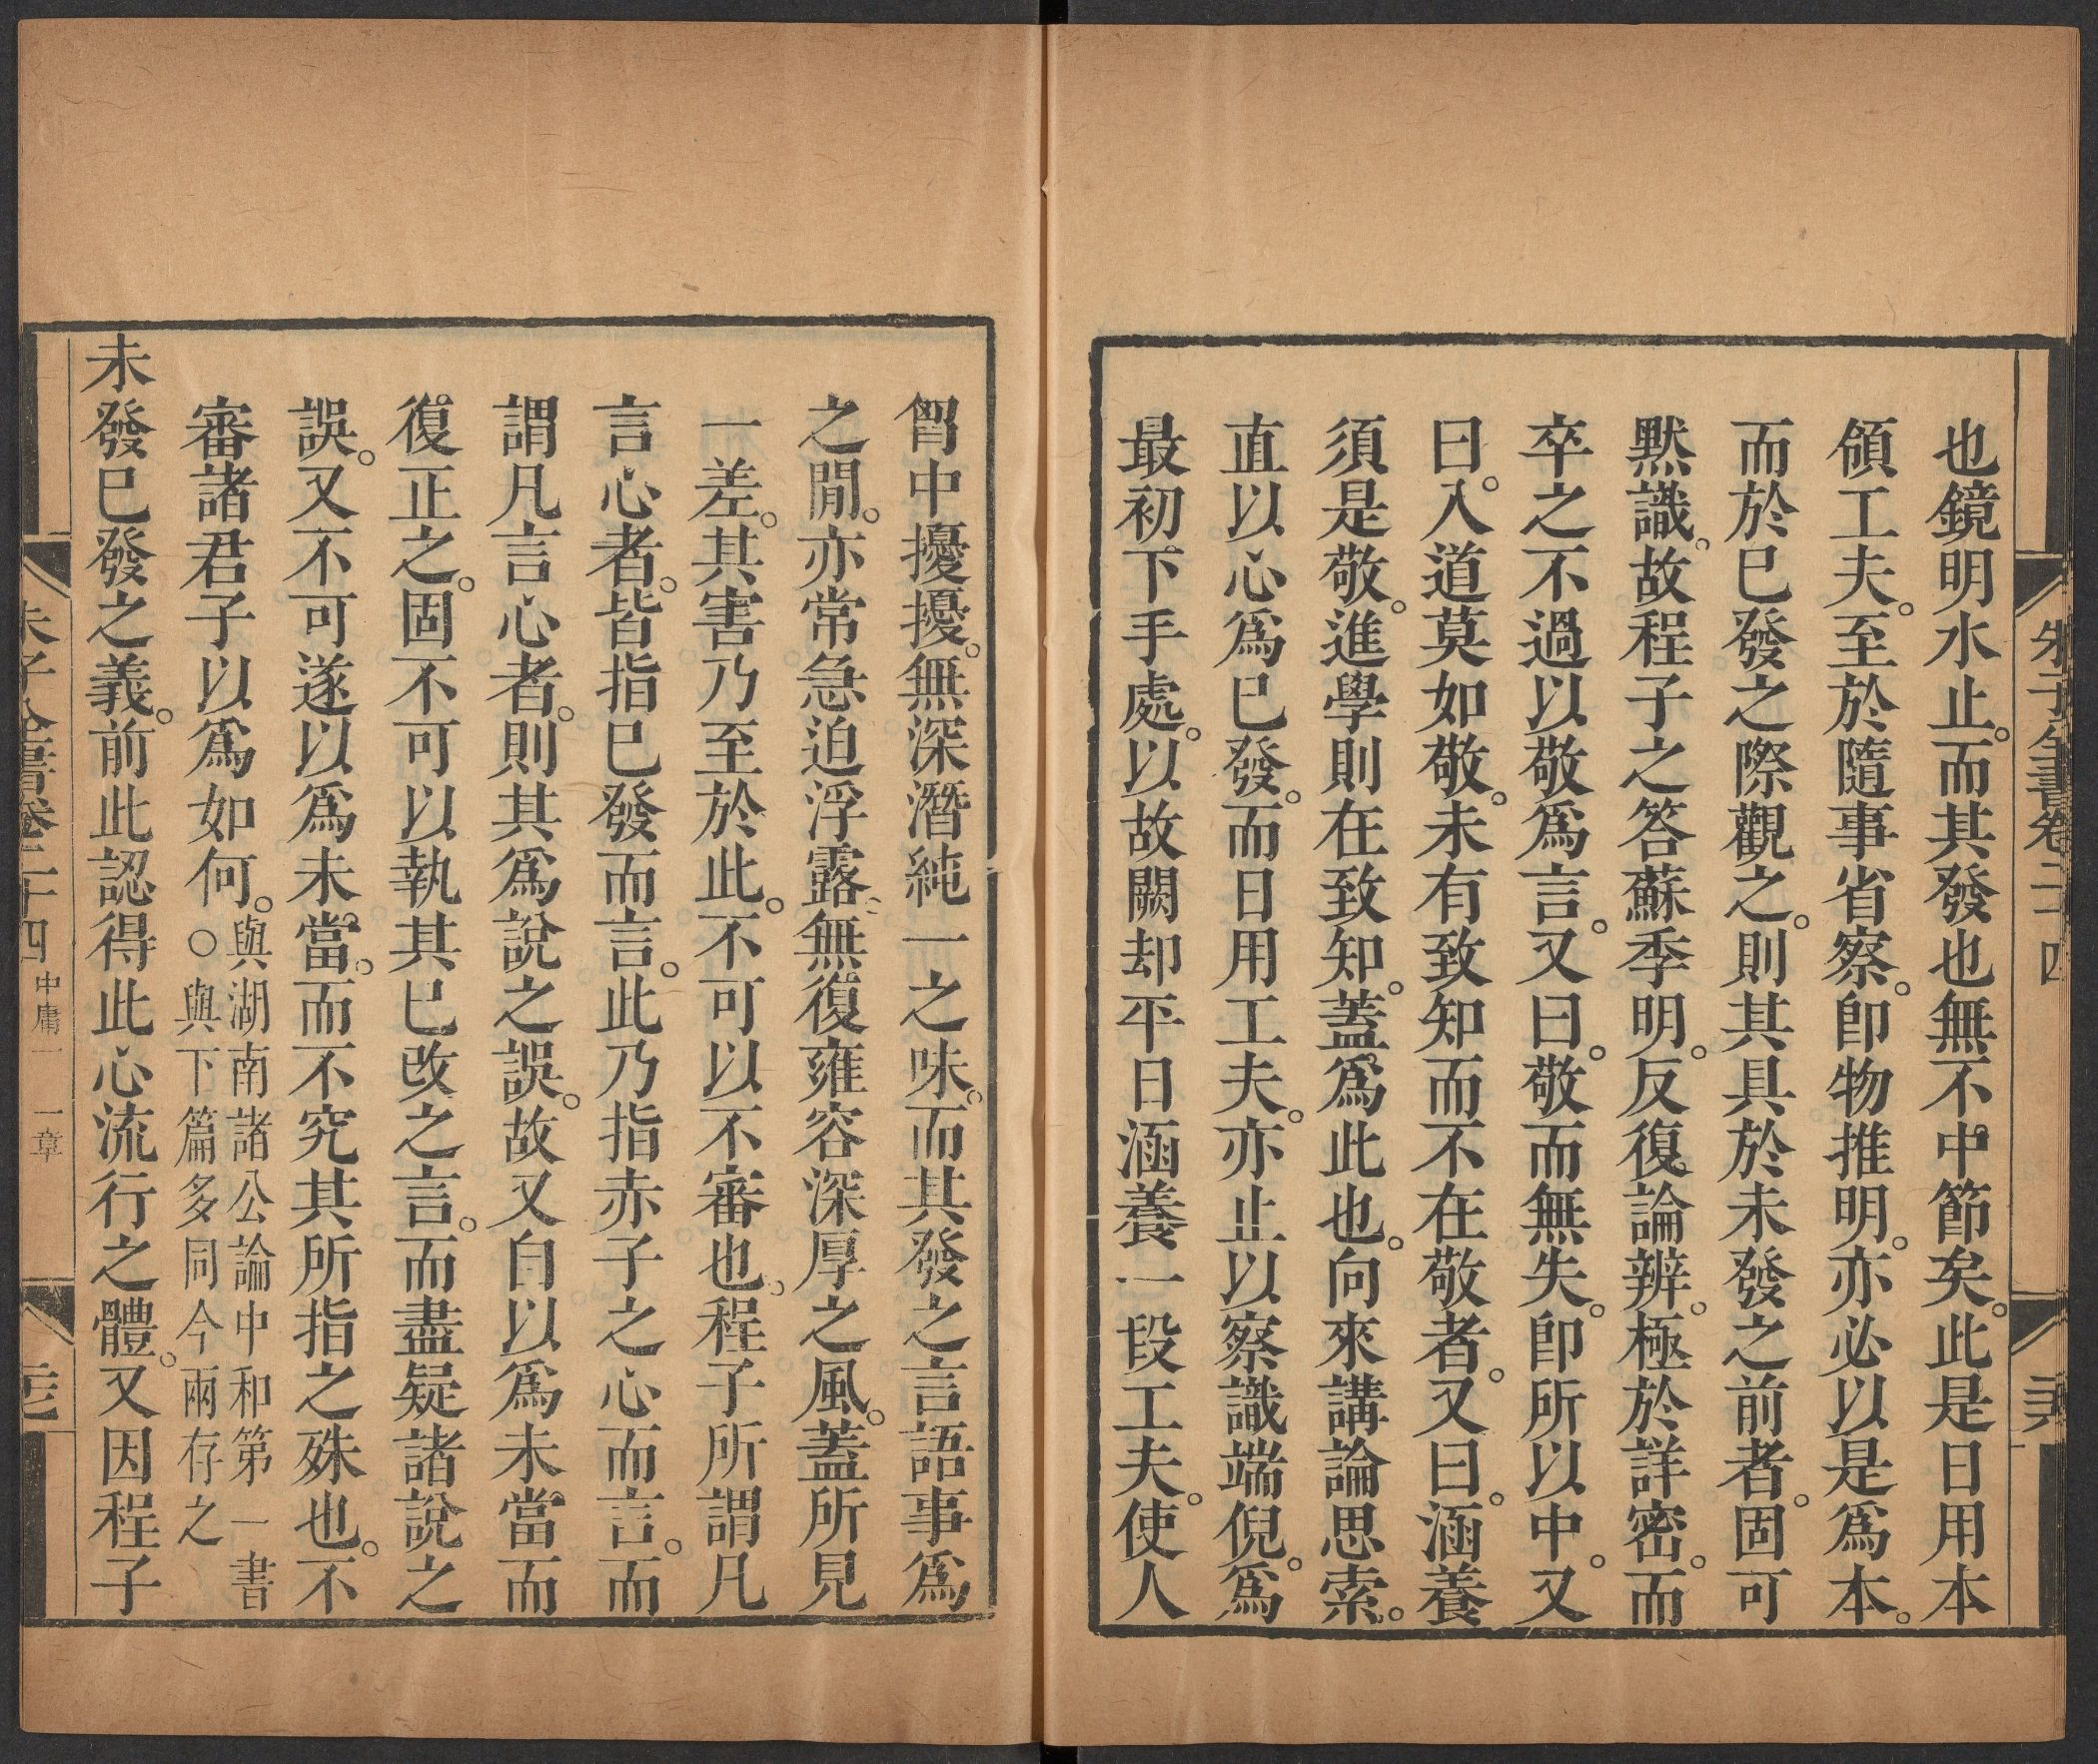 也鏡明水止。而其發也無不中節矣。此是日用本
領工夫。至於隨事省察。卽物推明。亦必以是爲本。
而於巳發之際觀之。則其具於未發之前者。固可
黙識。故程子之答蘇季明。反復論辨。極於詳密。而
卒之不過以敬爲言。又曰。敬而無失。卽所以中。又
曰。入道莫如敬。未有致知而不在敬者。又曰。涵養
須是敬。進學則在致知。蓋爲此也。向來講論思索。
直以心爲巳發。而日用工夫。亦止以察識端倪。爲
最初下手處。以故闕却平日涵養一段工夫。使人
朱子全書卷二十四
胷中擾擾。無深潛純一之味。而其發之言語事爲
之閒。亦常急迫浮露。無復雍容深厚之風。蓋所見
一差。其害乃至於此。不可以不審也。程子所謂凡
言心者。皆指巳發而言。此乃指赤子之心而言。而
謂凡言心者。則其爲說之誤。故又自以爲未當而
復正之。固不可以執其巳改之言。而盡疑諸說之
誤。又不可遂以爲未當。而不究其所指之殊也。不
審諸君子以爲如何。與湖南諸公論中和第一書
○與下篇多同今兩存之
未發巳發之義。前此認得此心流行之體。又因程子
朱子全書卷二十四 中庸一 一章